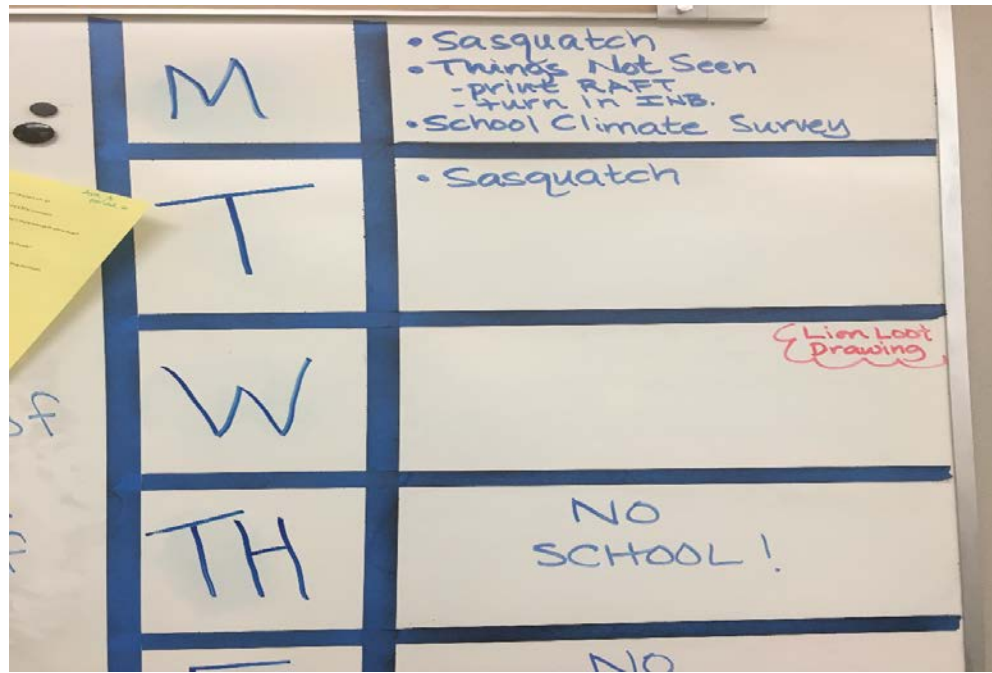 M
• Sasquatch
• Things Not Seen
- print RAFT
- turn in INB.
• School Climate Survey
T
• Sasquatch
W
Lion Loot
Drawing
TH
NO
SCHOOL!
NO